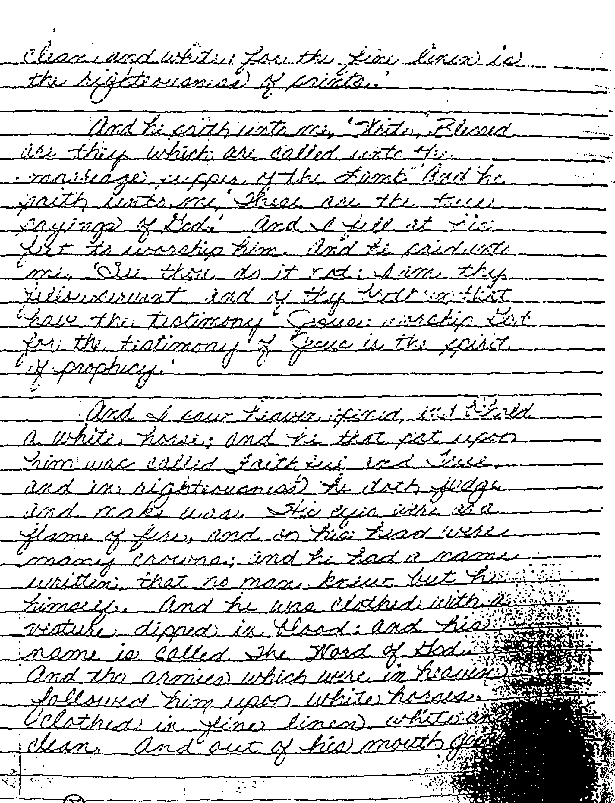 clean and white: for the fine linen is
the righteousness of saints.'
And he saith unto me, 'Write, Blessed
are they which are called unto the
marriage supper of the Lamb' And he
saith unto me, 'These are the true
sayings of God.' And I fell at his
feet to worship him. And he said unto
me, 'See thou do it not: I am thy
fellowservant and of thy that
have the testimony Jesus: worship God
for the testimony of Jesus is the spirit
of prophecy.'
And I saw heaven opened, and behold
a white horse; and he that sat upon
him was called Faithful and True,
and in righteousness he doth judge
and make war. His eyes were as a
flame of fire, and on his head were
many crowns; and he had a name
written, that no man knew but he
himself. And he was clothed with a
vesture dipped in blood: and his
name is called The Word of God.
And the armies which were in heaven
followed him upon white horses,
clothed in fine linen, white an
clean. And out of his mouth